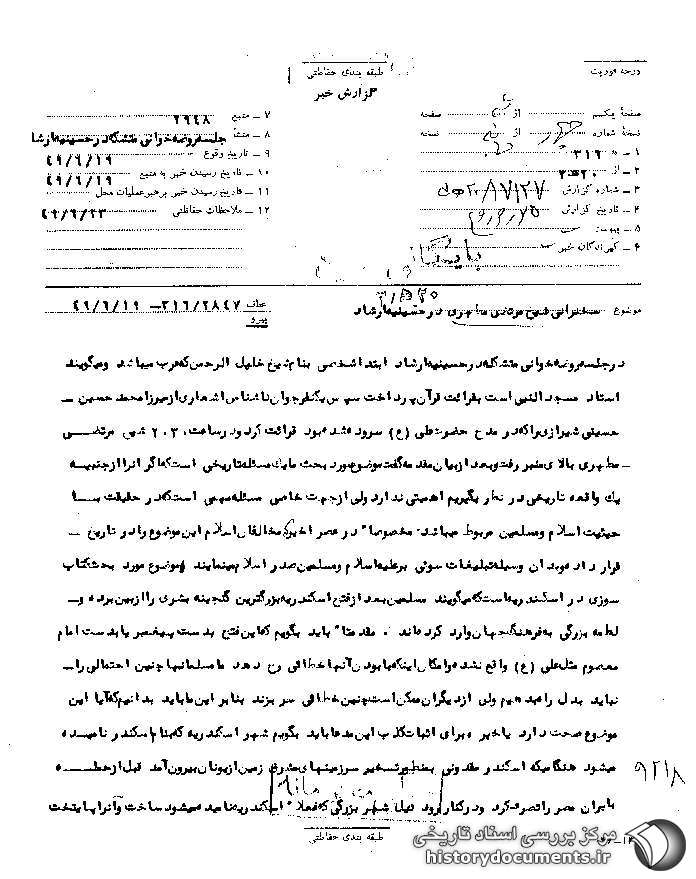 طبقه بندی حفاظتی
درجه فوریت
گزارش خبر
صفحه یکم از صفحه
نسخه شماره از نسخه
۱ - به ۳۱۶
۲ - از ۲۰ ه ۳
۳ - شماره گزارش
۴ - تاریخ گزارش
۵ - پیوست
۶ - گیرندگان خبر
۷ - منبع ۲۹۴۸
۸ - منشأ جلسه روضه خوانی متشکله در حسینیه ارشاد
۹ - تاریخ وقوع ۴۹/۶/۱۹
۱۰ - تاریخ رسیدن خبر به منبع ۴۹/۶/۱۹
۱۱ - تاریخ رسیدن خبر به رهبر عملیات محل
۱۲ - ملاحظات حفاظتی ۴۹/۶/۲۳
موضوع سخنرانی شیخ مرتضی مطهری در حسینیه ارشاد
عطف ۳۱۶/۲۸۴۷ - ۴۹/۶/۱۹
پیرو
در جلسه روضه خوانی متشکله در حسینیه ارشاد ابتدا شخصی بنام شیخ خلیل الرحمن که عرب میباشد و میگویند
استاد مسجد النبی است بقرائت قرآن پرداخت سپس یکنفر جوان ناشناس اشعاری از میرزا محمد حسین -
حسینی شیرازی را که در مدح حضرت علی (ع) سروده شده بود قرائت کرد و در ساعت ۲۰۳۰ شیخ مرتضی
- مطهری بالای منبر رفت و بعد از بیان مقدمه گفت موضوع مورد بحث ما یک مسئله تاریخی است که اگر آنرا از جنبه
یک واقعه تاریخی در نظر بگیریم اهمیتی ندارد ولی از جهت خاصی مسئله مهمی است که در حقیقت با
حیثیت اسلام و مسلمین مربوط میباشد مخصوصا" در عصر اخیر که مخالفان اسلام این موضوع را در تاریخ -
قرار داده و بدان وسیله تبلیغات سوئی بر علیه اسلام و مسلمین صدر اسلام مینمایند و موضوع مورد بحث کتاب
سوزی در اسکندریه است که میگویند مسلمین بعد از فتح اسکندریه بزرگترین گنجینه بشری را از بین برده و -
لطمه بزرگی به فرهنگ جهان وارد کرده اند . مقدمتا" باید بگویم که این فتح بدست پیغمبر یا بدست امام
معصوم مثل علی (ع) واقع نشده و امکان اینکه با بودن آنها خطائی رخ دهد ما مسلمانها چنین احتمالی را -
نباید بدل راه بدهیم ولی از دیگران ممکن است چنین خطائی سر بزند بنابر این ما باید بدانیم که آیا این
موضوع صحت دارد یا خیر و برای اثبات کذب این مدعا باید بگویم شهر اسکندریه که بنام اسکندر نامیده
میشود هنگامیکه اسکندر مقدونی بمنظور تسخیر سرزمینهای مشرق زمین از یونان بیرون آمد قبل از حمله
بایران مصر را تصرف کرد و در کنار رود نیل شهر بزرگی که فعلا" اسکندریه نامیده میشود ساخت و آنرا پایتخت
۹۲۱۸
طبقه بندی حفاظتی
مرکز بررسی اسناد تاریخی
historydocuments.ir